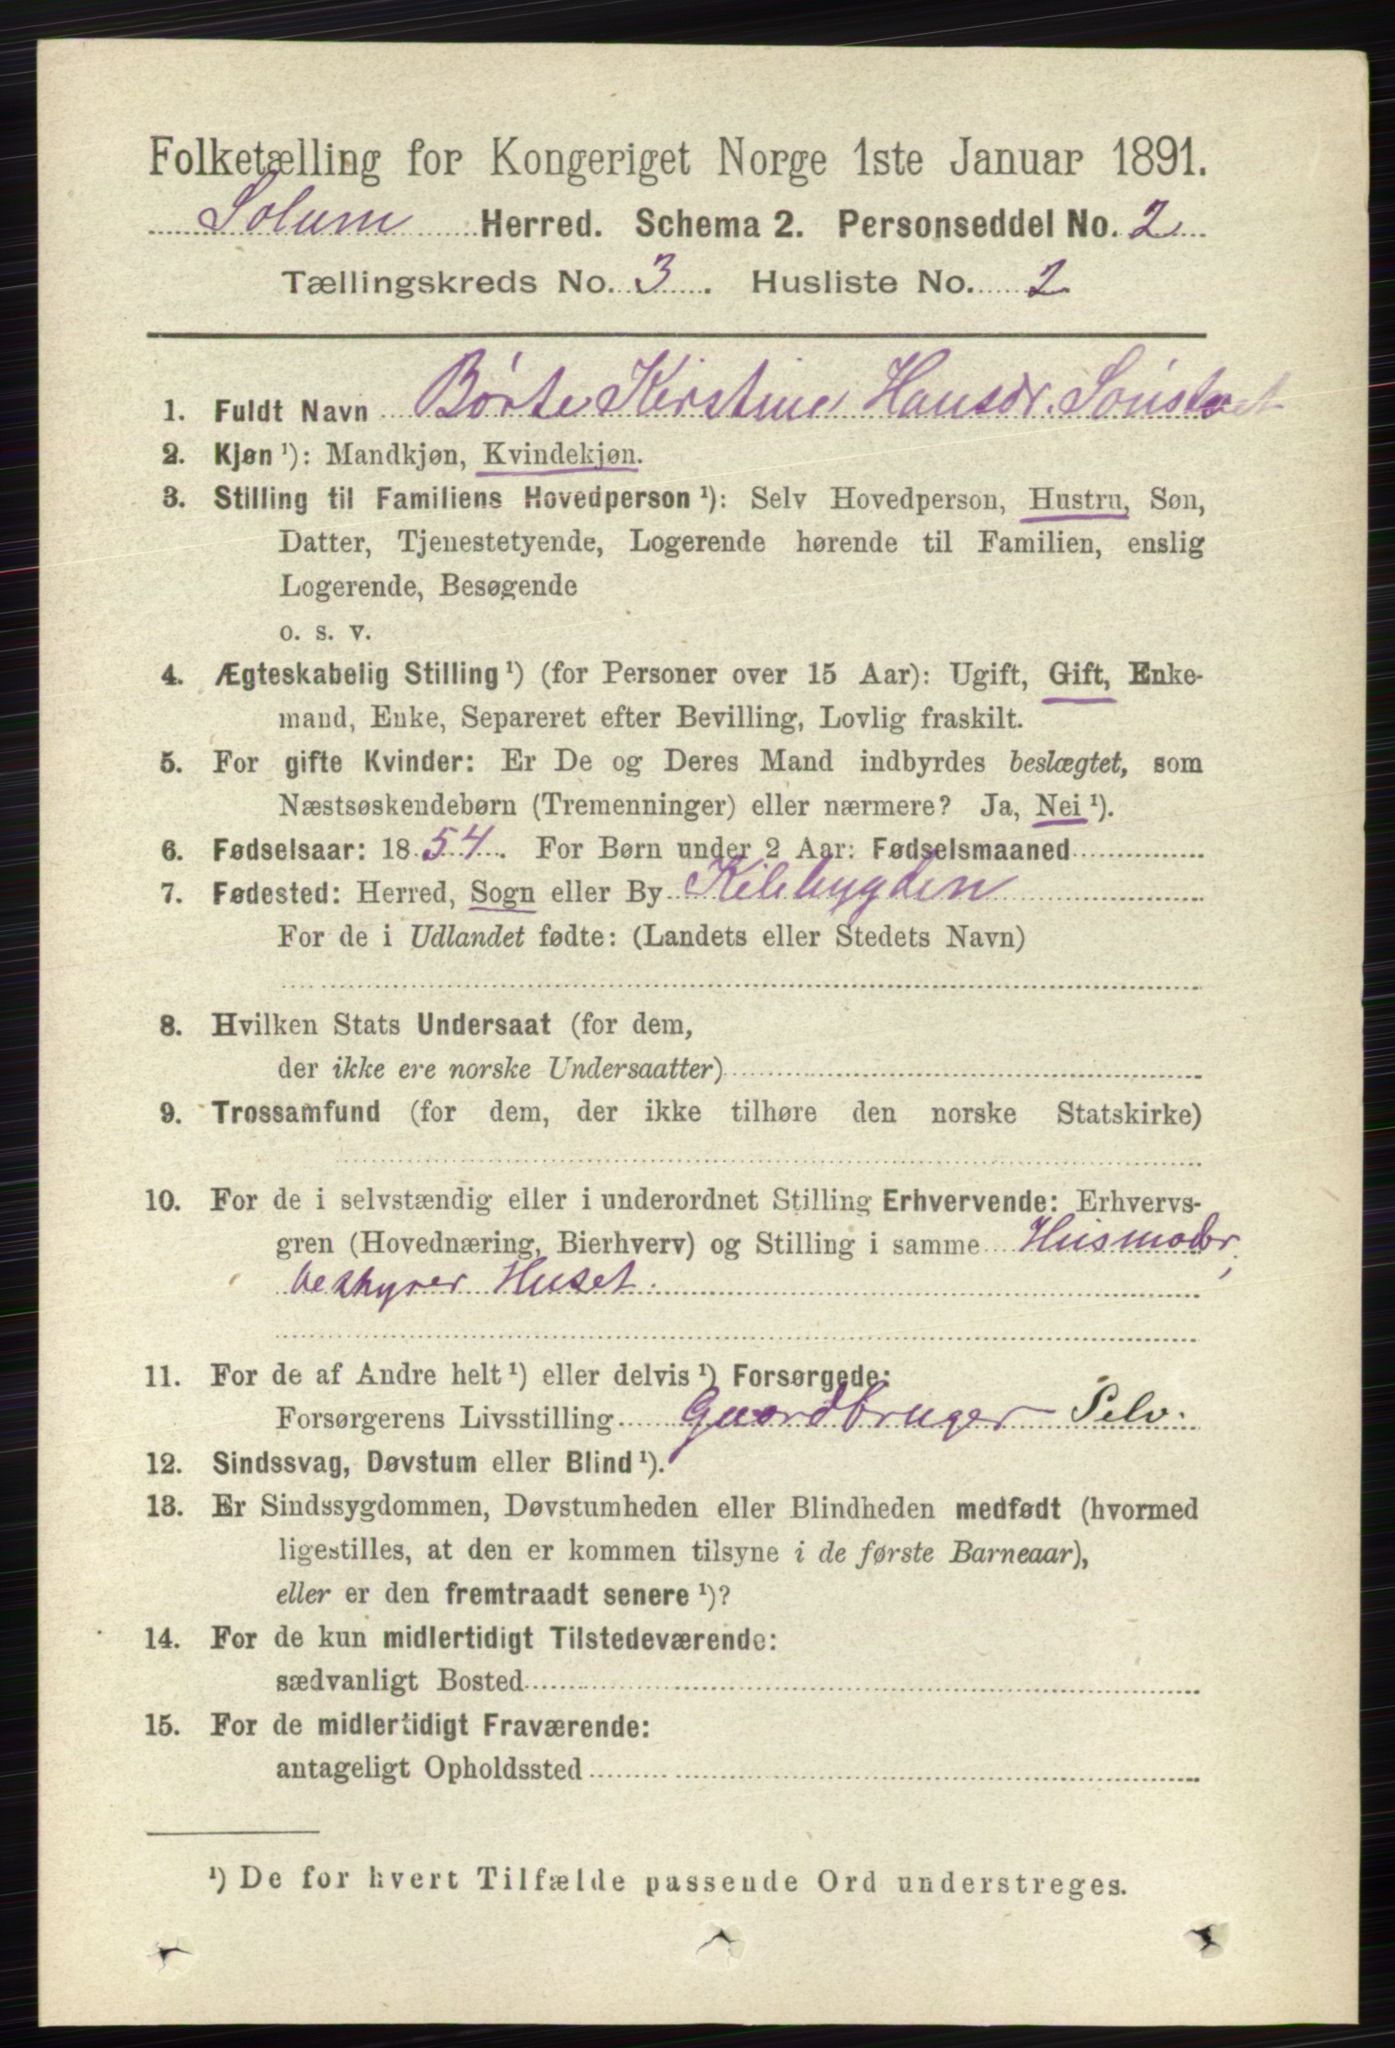 Folketælling for Kongeriget Norge 1ste Januar 1891.
Solum Herred. Schema 2. Personseddel No. 2
Tællingskreds No. 3. Husliste No. 2
1. Fuldt Navn Børte Kirstine Hansdr.
2. Kjøn ¹): Mandkjøn, Kvindekjøn.
3. Stilling til Familiens Hovedperson ¹): Selv Hovedperson, Hustru, Søn,
Datter, Tjenestetyende, Logerende hørende til Familien, enslig
Logerende, Besøgende
o. s. v.
4. Ægteskabelig Stilling ¹) (for Personer over 15 Aar): Ugift, Gift, Enke-
mand, Enke, Separeret efter Bevilling, Lovlig fraskilt.
5. For gifte Kvinder: Er De og Deres Mand indbyrdes beslægtet, som
Næstsøskendebørn (Tremenninger) eller nærmere? Ja, Nei ¹).
6. Fødselsaar: 1854. For Børn under 2 Aar: Fødselsmaaned
7. Fødested: Herred, Sogn eller By Kilebygden
For de i Udlandet fødte: (Landets eller Stedets Navn)
8. Hvilken Stats Undersaat (for dem,
der ikke ere norske Undersaatter)
9. Trossamfund (for dem, der ikke tilhøre den norske Statskirke)
10. For de i selvstændig eller i underordnet Stilling Erhvervende: Erhvervs-
gren (Hovednæring, Bierhverv) og Stilling i samme Husmoder,
bestyrer Huset.
11. For de af Andre helt ¹) eller delvis ¹) Forsørgede:
Forsørgerens Livsstilling Gaardbruger Selv.
12. Sindssvag, Døvstum eller Blind ¹).
13. Er Sindssygdommen, Døvstumheden eller Blindheden medfødt (hvormed
ligestilles, at den er kommen tilsyne i de første Barneaar),
eller er den fremtraadt senere ¹)?
14. For de kun midlertidigt Tilstedeværende:
sædvanligt Bosted
15. For de midlertidigt Fraværende:
antageligt Opholdssted
¹) De for hvert Tilfælde passende Ord understreges.